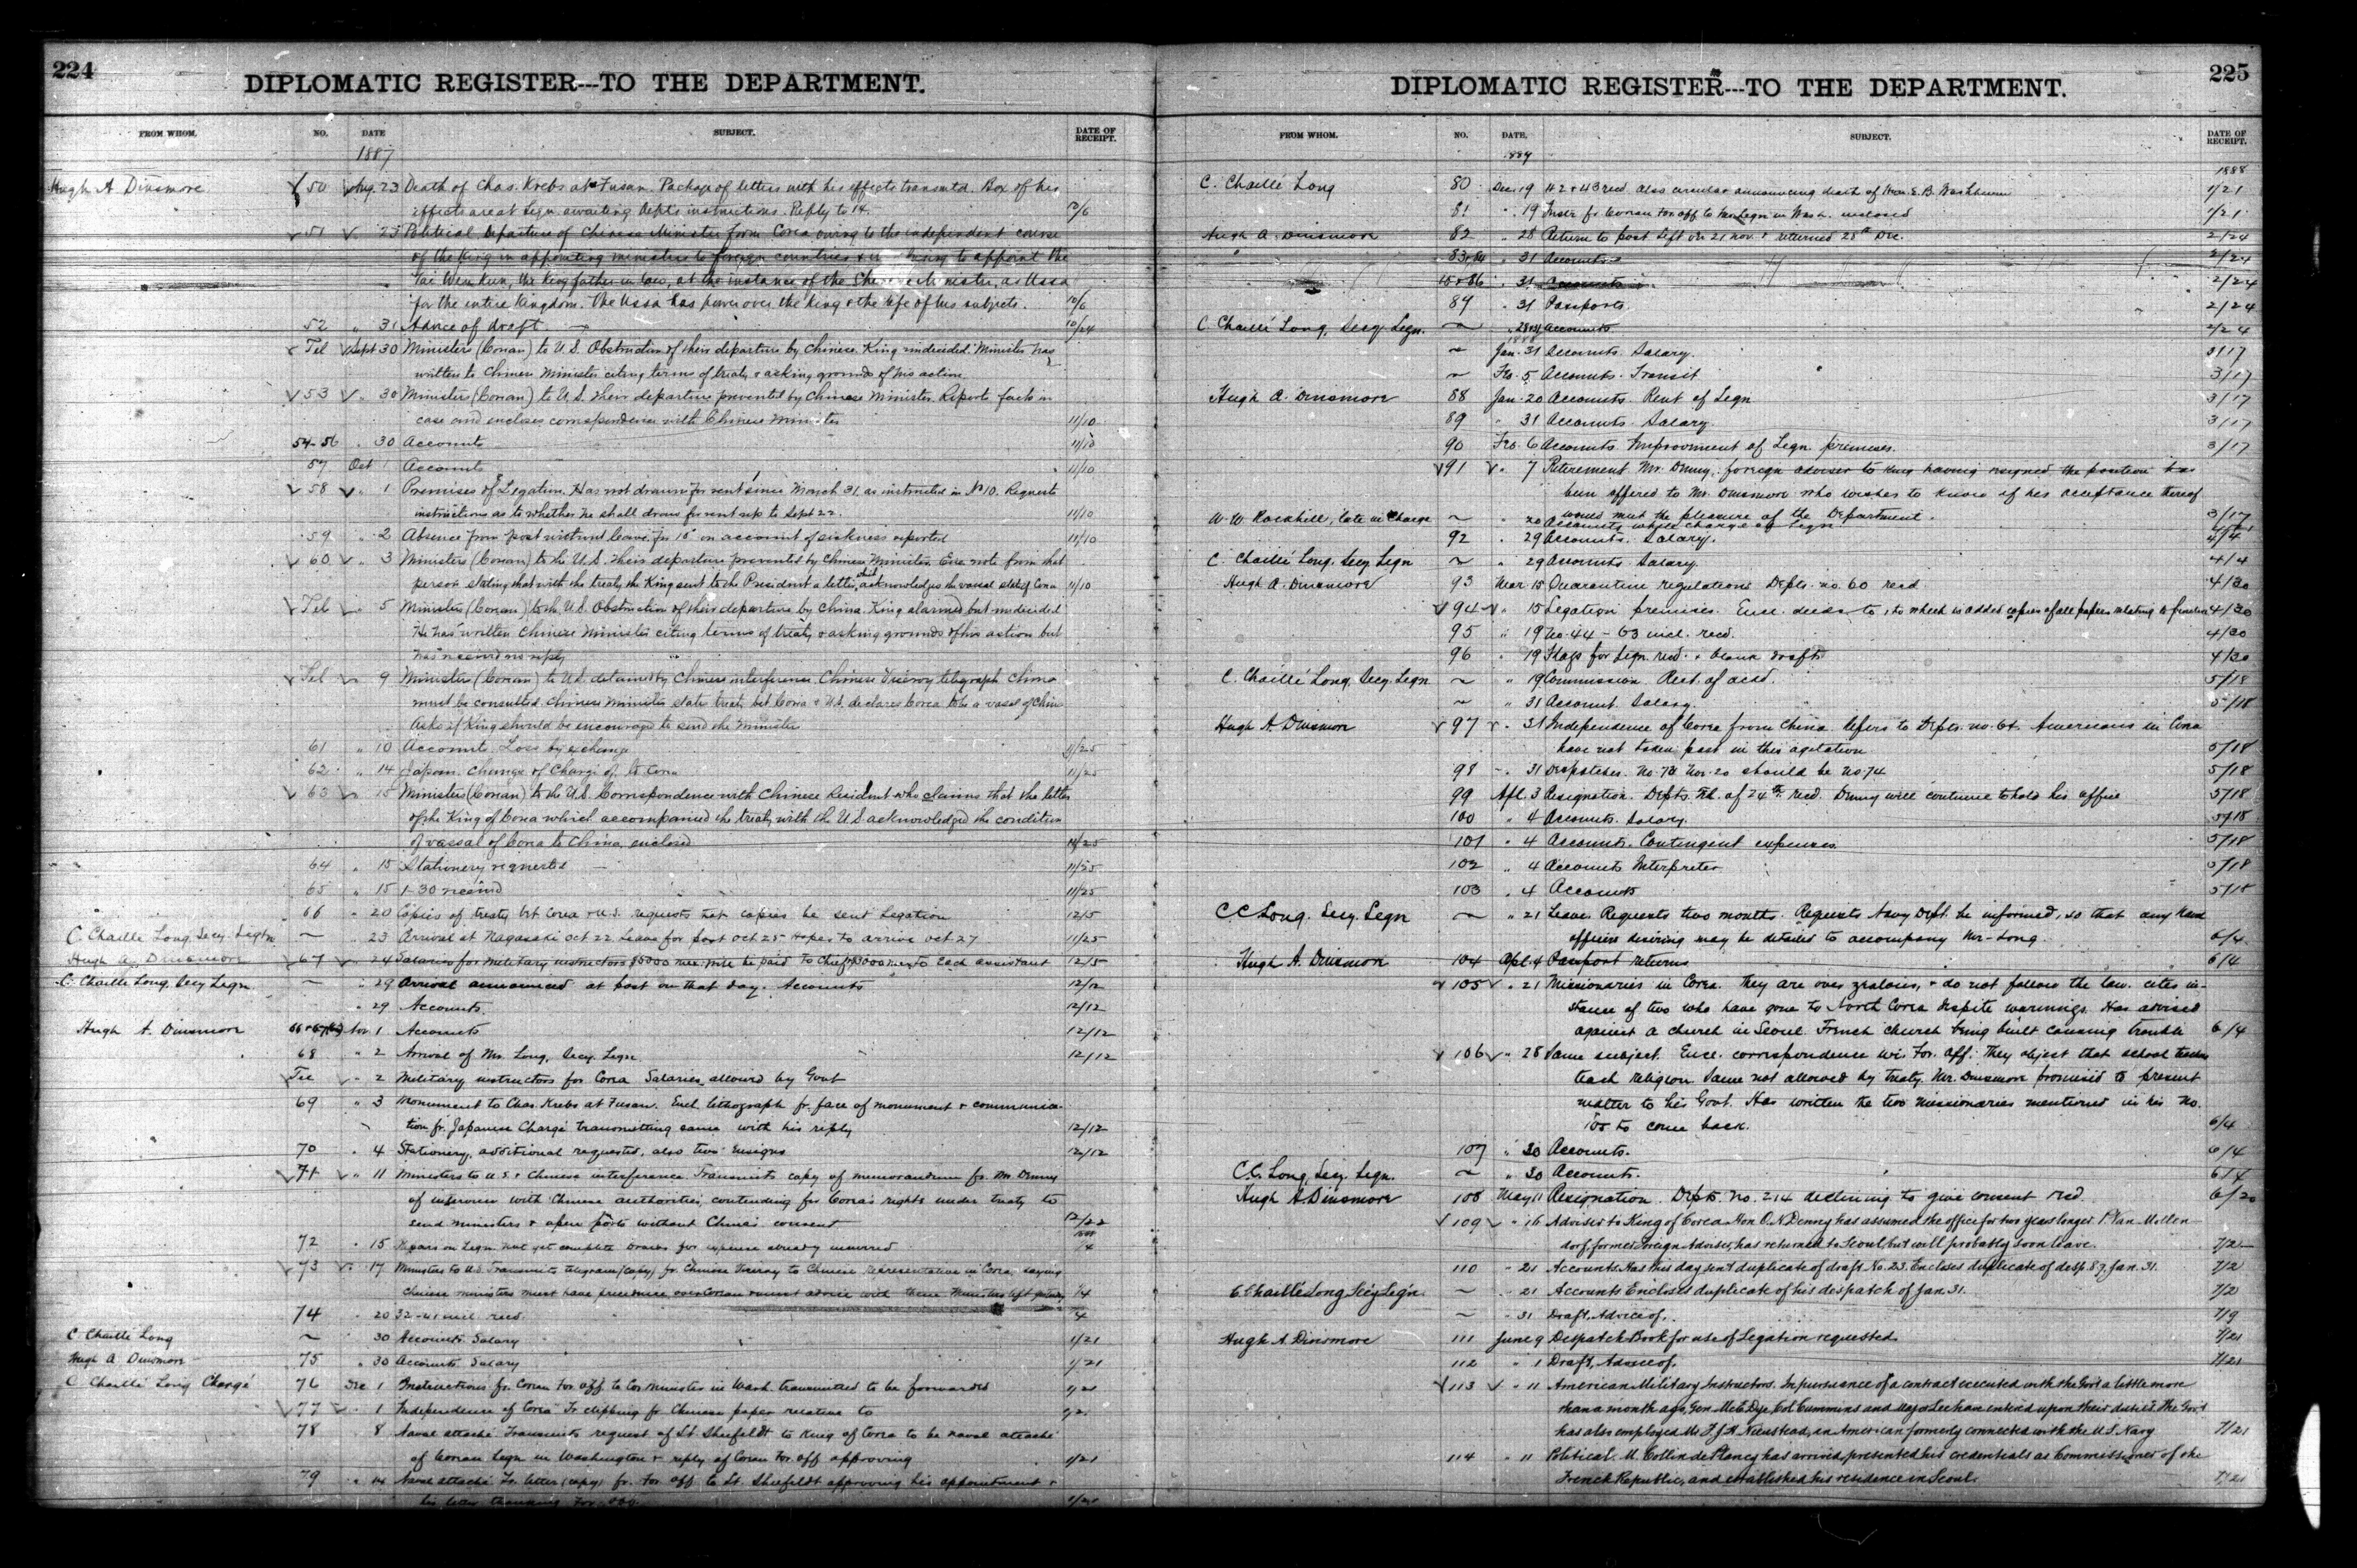 224
DIPLOMATIC REGISTER---TO THE DEPARTMENT.
FROM WHOM. NO. DATE SUBJECT. DATE OF RECEIPT.
1887
Hugh A Dinsmore 50 Aug. 23 Death of Chas. Krebs at Fusan. Package of letters with his effects transmtd. Box of his
effects are at Legn. awaiting Dept's instructions. Reply to 14. 10/6
51 " 23 Political Departure of Chinese Minister from Corea owing to the independent course
of the King in appointing ministers to foreign countries & to appoint the
Tai Wen Kun, the King father in law, at the instance of the Minister, as Ussa
for the entire Kingdom. The Ussa has power over the King & the life of his subjects. 10/6
52 " 31 Advice of draft. 10/24
Tel Sept 30 Ministers (Corean) to U.S. Obstruction of their departure by Chinese. King undecided. Minister has
written to Chinese Minister citing terms of treaty & asking grounds of his action
53 " 30 Minister (Corean) to U.S. their departure prevented by Chinese Minister. Reports facts in
case and encloses correspondence with Chinese Minister 11/10
54-56 " 30 Accounts 11/10
57 Oct 1 Accounts 11/10
58 " 1 Premises of Legation. Has not drawn for rent since March 31. as instructed in No 10. Requests
instructions as to whether he shall draw for rent up to Sept 22. 11/10
59 " 2 Absence from post without leave for 15 on account of sickness reported 11/10
60 " 3 Ministers (Corean) to the U.S. their departure prevented by Chinese Minister. Enc note from that
person stating that with the treaty the King sent to the President a letter which acknowledges the vassal state of Corea 11/10
Tel " 5 Ministers (Corean) to the U.S. Obstruction of their departure by China. King alarmed but undecided
He has written Chinese Minister citing terms of treaty & asking grounds of his action but
has received no reply
Tel " 9 Ministers (Corean) to U.S. detained by Chinese interference. Chinese Viceroy telegraph China
must be consulted. Chinese Minister states treaty bet Corea & U.S. declares Corea to be a vasal of China
Asks if King should be encouraged to send the Minister
61 " 10 Accounts. Loss by exchange 11/25
62 " 14 Japan. Change of Chargé d'. to Corea 11/25
63 " 15 Ministers (Corean) to the U.S. Correspondence with Chinese Resident who claims that the letter
of the King of Corea which accompanied the treaty with the U.S. acknowledged the condition
of vassal of Corea to China, enclosed 11/25
64 " 15 Stationery requested 11/25
65 " 15 1-30 received 11/25
66 " 20 Copies of treaty bet Corea & U.S. requests that copies be sent Legation 12/5
C. Chaille Long Secy. Legtn ~ " 23 Arrival at Nagasaki Oct 22 Leave for post Oct 25 hopes to arrive Oct 27 11/25
Hugh A. Dinsmore 67 " 24 Salaries for military instructors $5000 mex. will be paid to Chief $3000 mex. to each assistant 12/5
C. Chaille Long, Secy Legn. ~ " 29 Arrival announced at post on that day. Accounts 12/12
" 29 Accounts. 12/12
Hugh A. Dinsmore Nov 1 Accounts 12/12
68 " 2 Arrival of Mr. Long, Secy. Legn. 12/12
Tel " 2 Military instructors for Corea Salaries allowed by Govt
69 " 3 Monument to Chas. Krebs at Fusan. Encl. lithograph fr. face of monument & communica-
tion fr. Japanese Chargé transmitting same with his reply 12/12
70 " 4 Stationery, additional requested, also two Ensigns 12/12
71 " 11 Ministers to U.S. & Chinese interference Transmits copy of memorandum fr. Mr Denny
of interview with Chinese authorities, contending for Corea's rights under treaty to
send ministers & open ports without China's consent 12/22
72 " 15 Repairs on Legn. not yet complete Draws for expense already incurred 1/4
73 " 17 Ministers to U.S. Transmits telegram (copy) fr. Chinese Viceroy to Chinese representative in Corea saying
Chinese ministers must have precedence over Corean & must advise with them Ministers left 1/4
74 " 20 32-41 incl. recd. 1/4
C Chaille Long ~ 30 Accounts Salary 1/21
Hugh A Dinsmore 75 " 30 Accounts Salary 1/21
C Chaillé Long Chargé 76 Dec 1 Instructions fr. Corean For. off. to Cor Minister in Wash. transmitted to be forwarded 1/21
77 " 1 Independence of Corea Tr clipping fr Chinese paper relative to 1/21
78 8 Naval attaché Transmits request of Lt Shufeldt to King of Corea to be naval attaché
of Corean Legn in Washington & reply of Corean For. off approving 1/21
79 " 14 Naval attaché Tr. letter (copy) fr. For off to Lt. Shufeldt approving his appointment &
his letter thanking For. off. 1/21
225
DIPLOMATIC REGISTER---TO THE DEPARTMENT.
FROM WHOM. NO. DATE. SUBJECT. DATE OF RECEIPT.
1888
C. Chaillé Long 80 Dec. 19 42 & 43 recd also circular announcing death of Hon. E. B. Washburne 1/21
81 " 19 Instr. fr Corean For. off to Legn in Wash. enclosed 1/21
Hugh A. Dinsmore 82 " 28 Return to post Left on 21 Nov. & returned 28th Dec. 2/24
" 83&84 " 31 Accounts 2/24
85&86 " 31 Accounts 2/24
87 " 31 Passports. 2/24
C Chaillé Long, Secy Legn. ~ " 28&31 Accounts. 2/24
1888
~ Jan. 31 Accounts. Salary. 3/17
~ Feb. 5 Accounts. Transit 3/17
Hugh A. Dinsmore 88 Jan. 20 Accounts. Rent of Legn 3/17
89 " 31 Accounts. Salary. 3/17
90 Feb. 6 Accounts. Improvement of Legn. premises. 3/17
91 " 7 Retirement Mr. Denny, foreign adviser to King having resigned the position has
been offered to Mr. Dinsmore who wishes to know if his acceptance thereof
would meet the pleasure of the Department. 3/17
W. W. Rockhill, late in Charge ~ " 20 Accounts while charge of Legn
92 " 29 Accounts. Salary. 4/4
C. Chaillé Long, Secy Legn ~ " 29 Accounts Salary. 4/4
Hugh A. Dinsmore 93 Mar 15 Quarantine regulations Depts. no. 60 recd 4/30
94 " 15 Legation premises. Encl. deeds to, to which is added copies of all papers relating to 4/30
95 " 19 No. 44 - 63 incl. recd. 4/30
96 " 19 Flags for Legn. recd. & blank drafts 4/30
C. Chaillé Long, Secy. Legn ~ " 19 Commission. Rect. of acsd. 5/18
~ " 31 Account. Salary. 5/18
Hugh A. Dinsmore 97 " 31 Independence of Corea from China Refers to Depts. no. 64. Americans in Corea
have not taken part in this agitation 5/18
98 " 31 Despatches. No. 73 Nov. 20 should be no. 74 5/18
99 Apl. 3 Resignation. Depts. Tel. of 24th recd. Denny will continue to hold his office 5/18
100 " 4 Accounts. Salary. 5/18
101 " 4 Accounts. Contingent expenses 5/18
102 " 4 Accounts Interpreter 5/18
103 " 4 Accounts 5/18
C C Long. Secy. Legn ~ " 21 Leave. Requests two months. Requests Navy Dept. be informed, so that any Naval
officers desiring may be detailed to accompany Mr. Long. 6/4
Hugh A. Dinsmore 104 Apl. 4 Passport returns 6/4
105 " 21 Missionaries in Corea. They are over zealous, & do not follow the law. cites in-
stance of two who have gone to North Corea despite warnings. Has advised
against a church in Seoul French church being built causing trouble 6/4
106 " 28 Same subject. Encl. correspondence wi. For. off. They object that school teachers
teach religion Same not allowed by treaty. Mr. Dinsmore promised to present
matter to his Govt. Has written the two missionaries mentioned in his no.
105 to come back. 6/4
107 " 30 Accounts. 6/4
C.C. Long, Secy Legn. ~ " 30 Accounts. 6/4
Hugh A Dinsmore 108 May 11 Resignation. Depts. no. 214 declining to give consent recd. 6/20
109 " 16 Adviser to King of Corea Hon O. N. Denny has assumed the office for two years longer. P. Van Mollen-
dorf, former Foreign Adviser, has returned to Seoul but will probably soon leave. 7/2
110 " 21 Accounts. Has this day sent duplicate of draft No. 23. Encloses duplicate of desp. 87, Jan. 31. 7/2
C. Chaillé Long Sec'y Leg'n. ~ " 21 Accounts Encloses duplicate of his despatch of Jan. 31. 7/2
~ " 31 Draft, Advice of. 7/9
Hugh A. Dinsmore 111 June 9 Despatch Book for use of Legation requested. 7/21
112 " 1 Draft, Advice of. 7/21
113 " 11 American Military Instructors. In pursuance of a contract executed with the Gov't a little more
than a month ago, Gen. McE Dye, Col. Cummins and Major Lee have entered upon their duties. The Gov't
has also employed Mr. F. J. H. Nienstead, an American formerly connected with the U.S. Navy 7/21
114 " 11 Political. M. Collin de Plancy has arrived, presented his credentials as Commissioner of the
French Republic, and established his residence in Seoul. 7/21